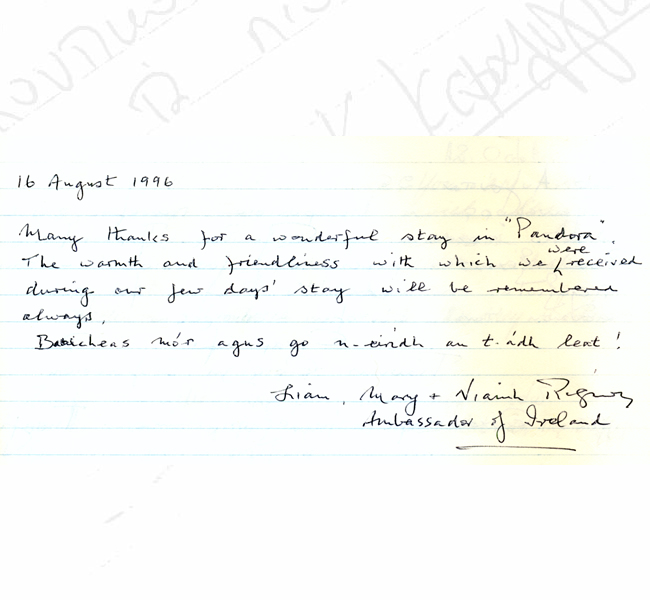 16 August 1996
Many thanks for a wonderful stay in "Pandora".
The warmth and friendliness with which we were received
during our few days' stay will be remembered
always.
Buíoċas mór agus go n-eirídh an t-ádh leat!
Liam, Mary + Niamh
Ambassador of Ireland